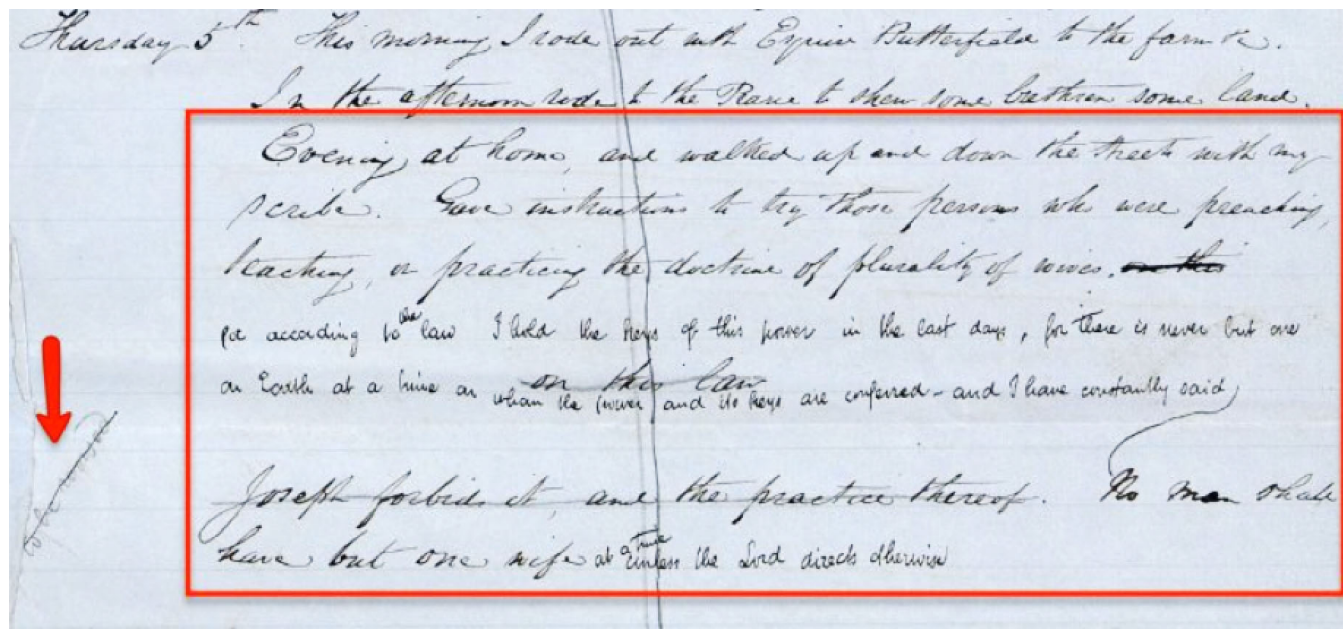 Thursday 5th. This morning I rode out with Esquire Butterfield to the farm &c.
In the afternoon rode to the Prarie to shew some brethren some land.
Evening at home, and walked up and down the streets with my
scribe. Gave instructions to try those persons who were preaching,
teaching, or practicing the doctrine of plurality of wives. on this
for according to the law I hold the keys of this power in the last days, for there is never but one
on this law
on Earth at a time on whom the power and its keys are conferred – and I have constantly said
Joseph forbids it, and the practice thereof. No man shall
have but one wife at a time unless the Lord directs otherwise
to be revised